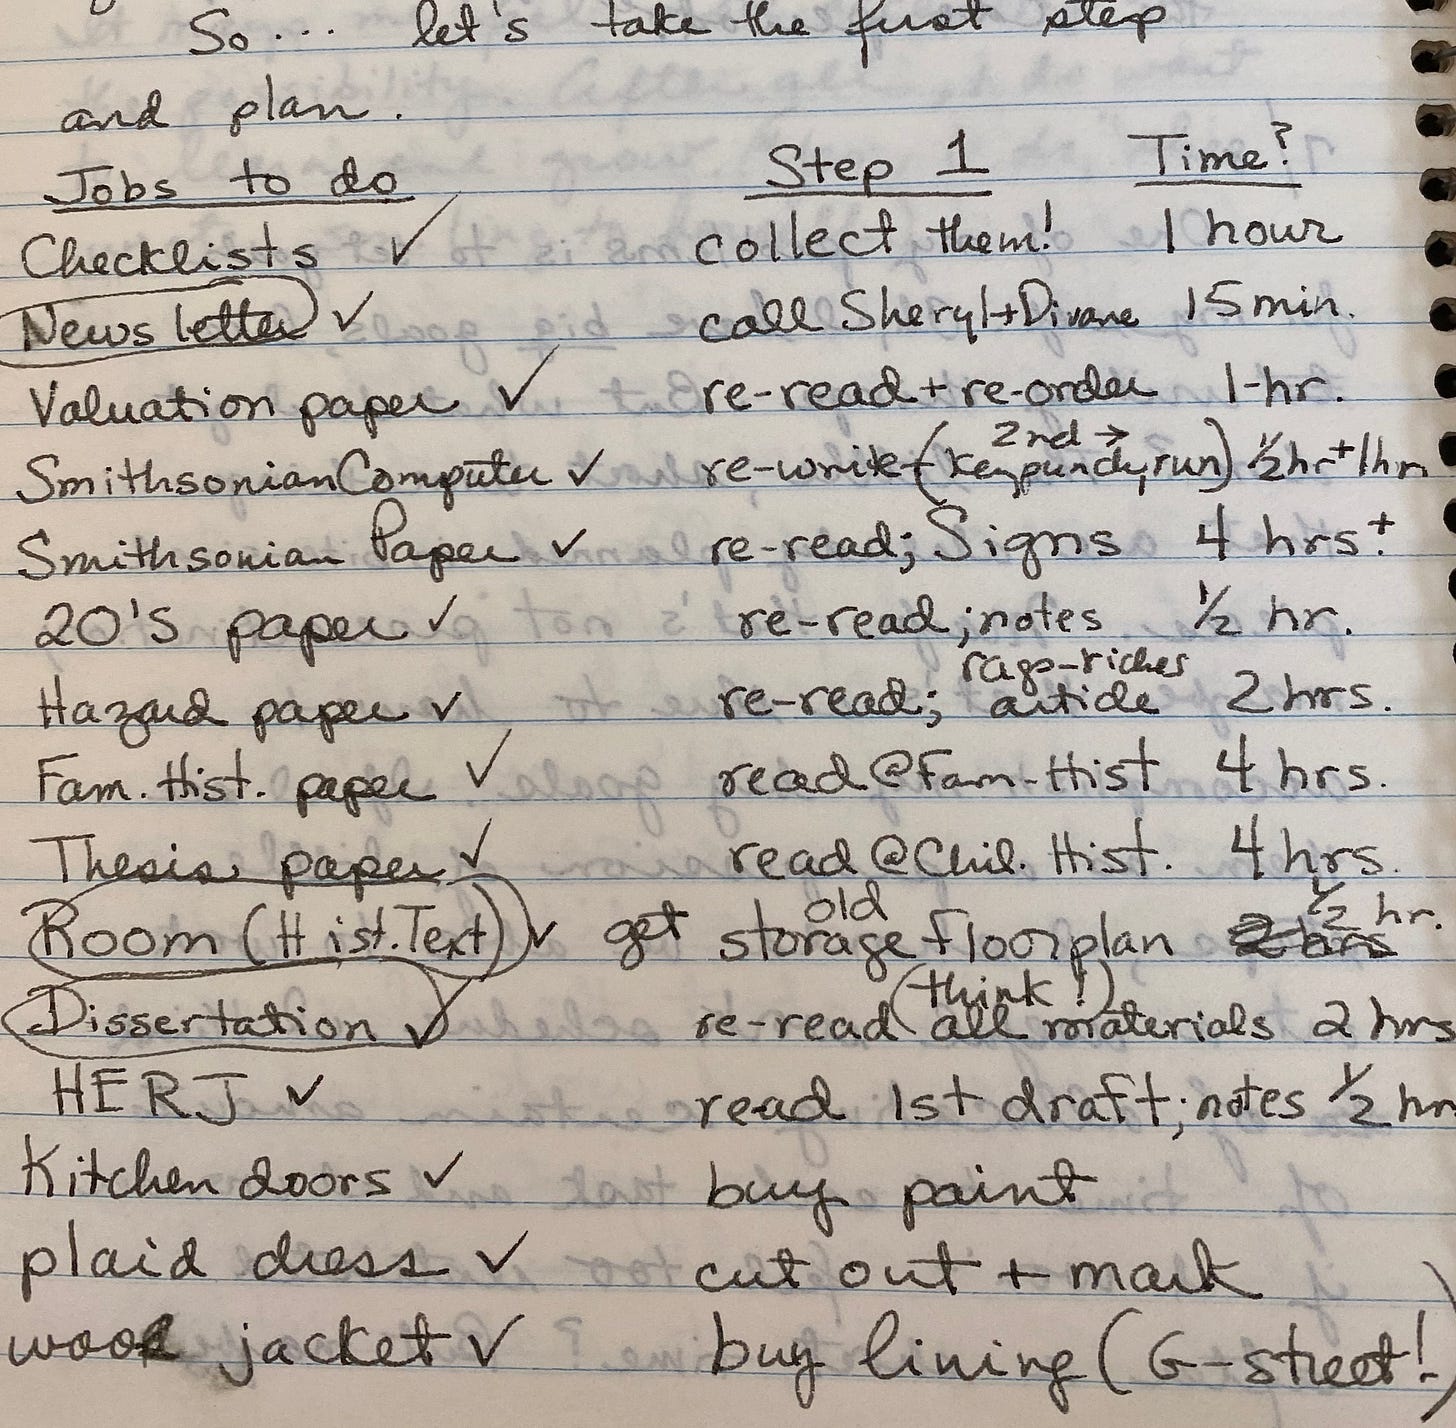 So... let's take the first step
and plan.
Jobs to do Step 1 Time?
Checklists ✓ collect them! 1 hour
News letter ✓ call Sheryl + Divane 15 min.
Valuation paper ✓ re-read + re-order 1-hr.
2nd →
Smithsonian Computer ✓ re-write (keypunch, run) ½ hr + 1 hr
Smithsonian Paper ✓ re-read; Signs 4 hrs+
20's paper ✓ re-read; notes ½ hr.
rags-riches
Hazard paper ✓ re-read; article 2 hrs.
Fam. Hist. paper ✓ read @ Fam-Hist 4 hrs.
Thesis paper ✓ read @ Chil. Hist. 4 hrs.
old ½ hr.
Room (Hist. Text) ✓ get storage floorplan 2 hrs
(think!)
Dissertation ✓ re-read all materials 2 hrs
HERJ ✓ read 1st draft; notes ½ hr
Kitchen doors ✓ buy paint
plaid dress ✓ cut out + mark
wool jacket ✓ buy lining (G-street!)